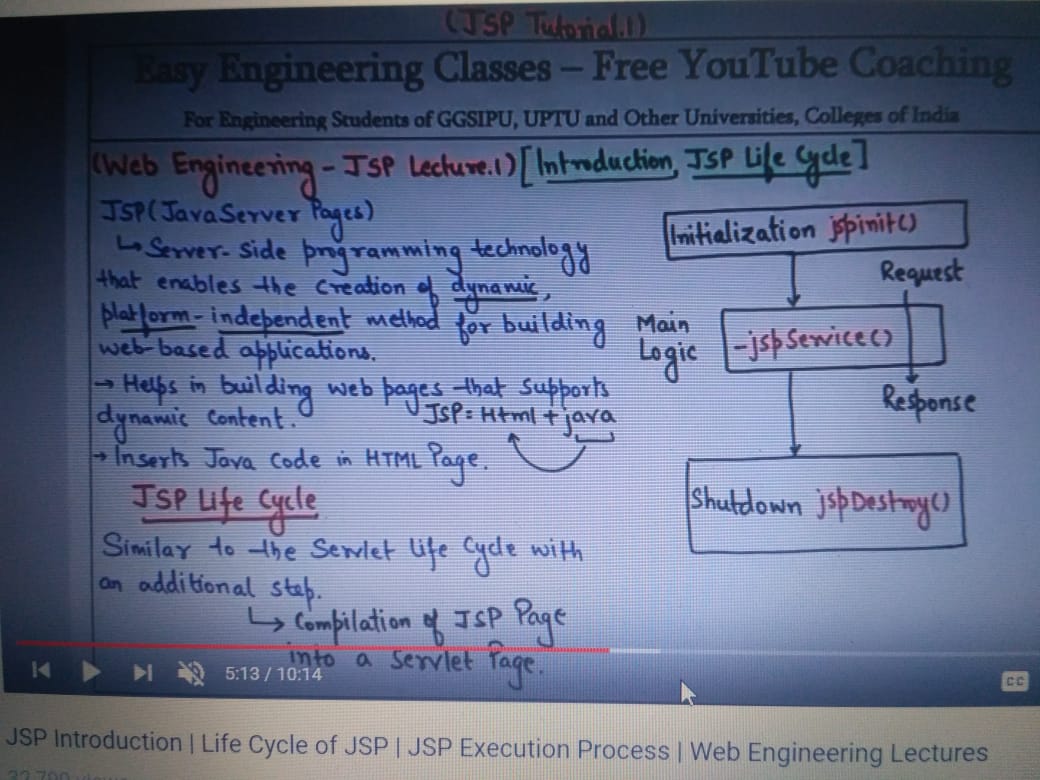 (JSP Tutorial.1)
Easy Engineering Classes – Free YouTube Coaching
For Engineering Students of GGSIPU, UPTU and Other Universities, Colleges of India
(Web Engineering - JSP Lecture.1) [Introduction, JSP Life Cycle]
JSP (JavaServer Pages)
↳ Server-side programming technology
that enables the creation of dynamic,
platform-independent method for building
web-based applications.
→ Helps in building web pages that supports
dynamic content.
JSP = Html + java
→ Inserts Java Code in HTML Page.
JSP Life Cycle
Similar to the Servlet life Cycle with
an additional step.
↳ Compilation of JSP Page
into a Servlet Page.
Initialization jspinit()
Request
Main
Logic
-jspService()
Response
Shutdown jspDestroy()
5:13 / 10:14
CC
JSP Introduction | Life Cycle of JSP | JSP Execution Process | Web Engineering Lectures